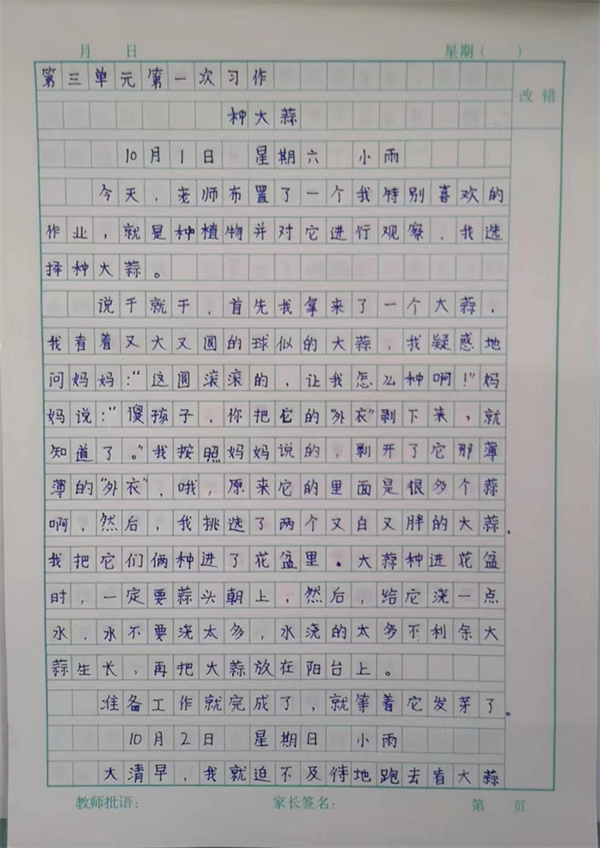 月 日 星期( )
第三单元第一次习作
改错
种大蒜
10月1日 星期六 小雨
今天，老师布置了一个我特别喜欢的
作业，就是种植物并对它进行观察，我选
择种大蒜。
说干就干，首先我拿来了一个大蒜，
我看着又大又圆的球似的大蒜，我疑惑地
问妈妈："这圆滚滚的，让我怎么种啊！"妈
妈说："傻孩子，你把它的"外衣"剥下来，就
知道了。"我按照妈妈说的，剥开了它那薄
薄的"外衣"，哦，原来它的里面是很多个蒜
啊，然后，我挑选了两个又白又胖的大蒜。
我把它们俩种进了花盆里。大蒜种进花盆
时，一定要蒜头朝上，然后，给它浇一点
水，水不要浇太多，水浇的太多不利余大
蒜生长，再把大蒜放在阳台上。
准备工作就完成了，就等着它发芽了。
10月2日 星期日 小雨
大清早，我就迫不及待地跑去看大蒜
教师批语： 家长签名： 第 页